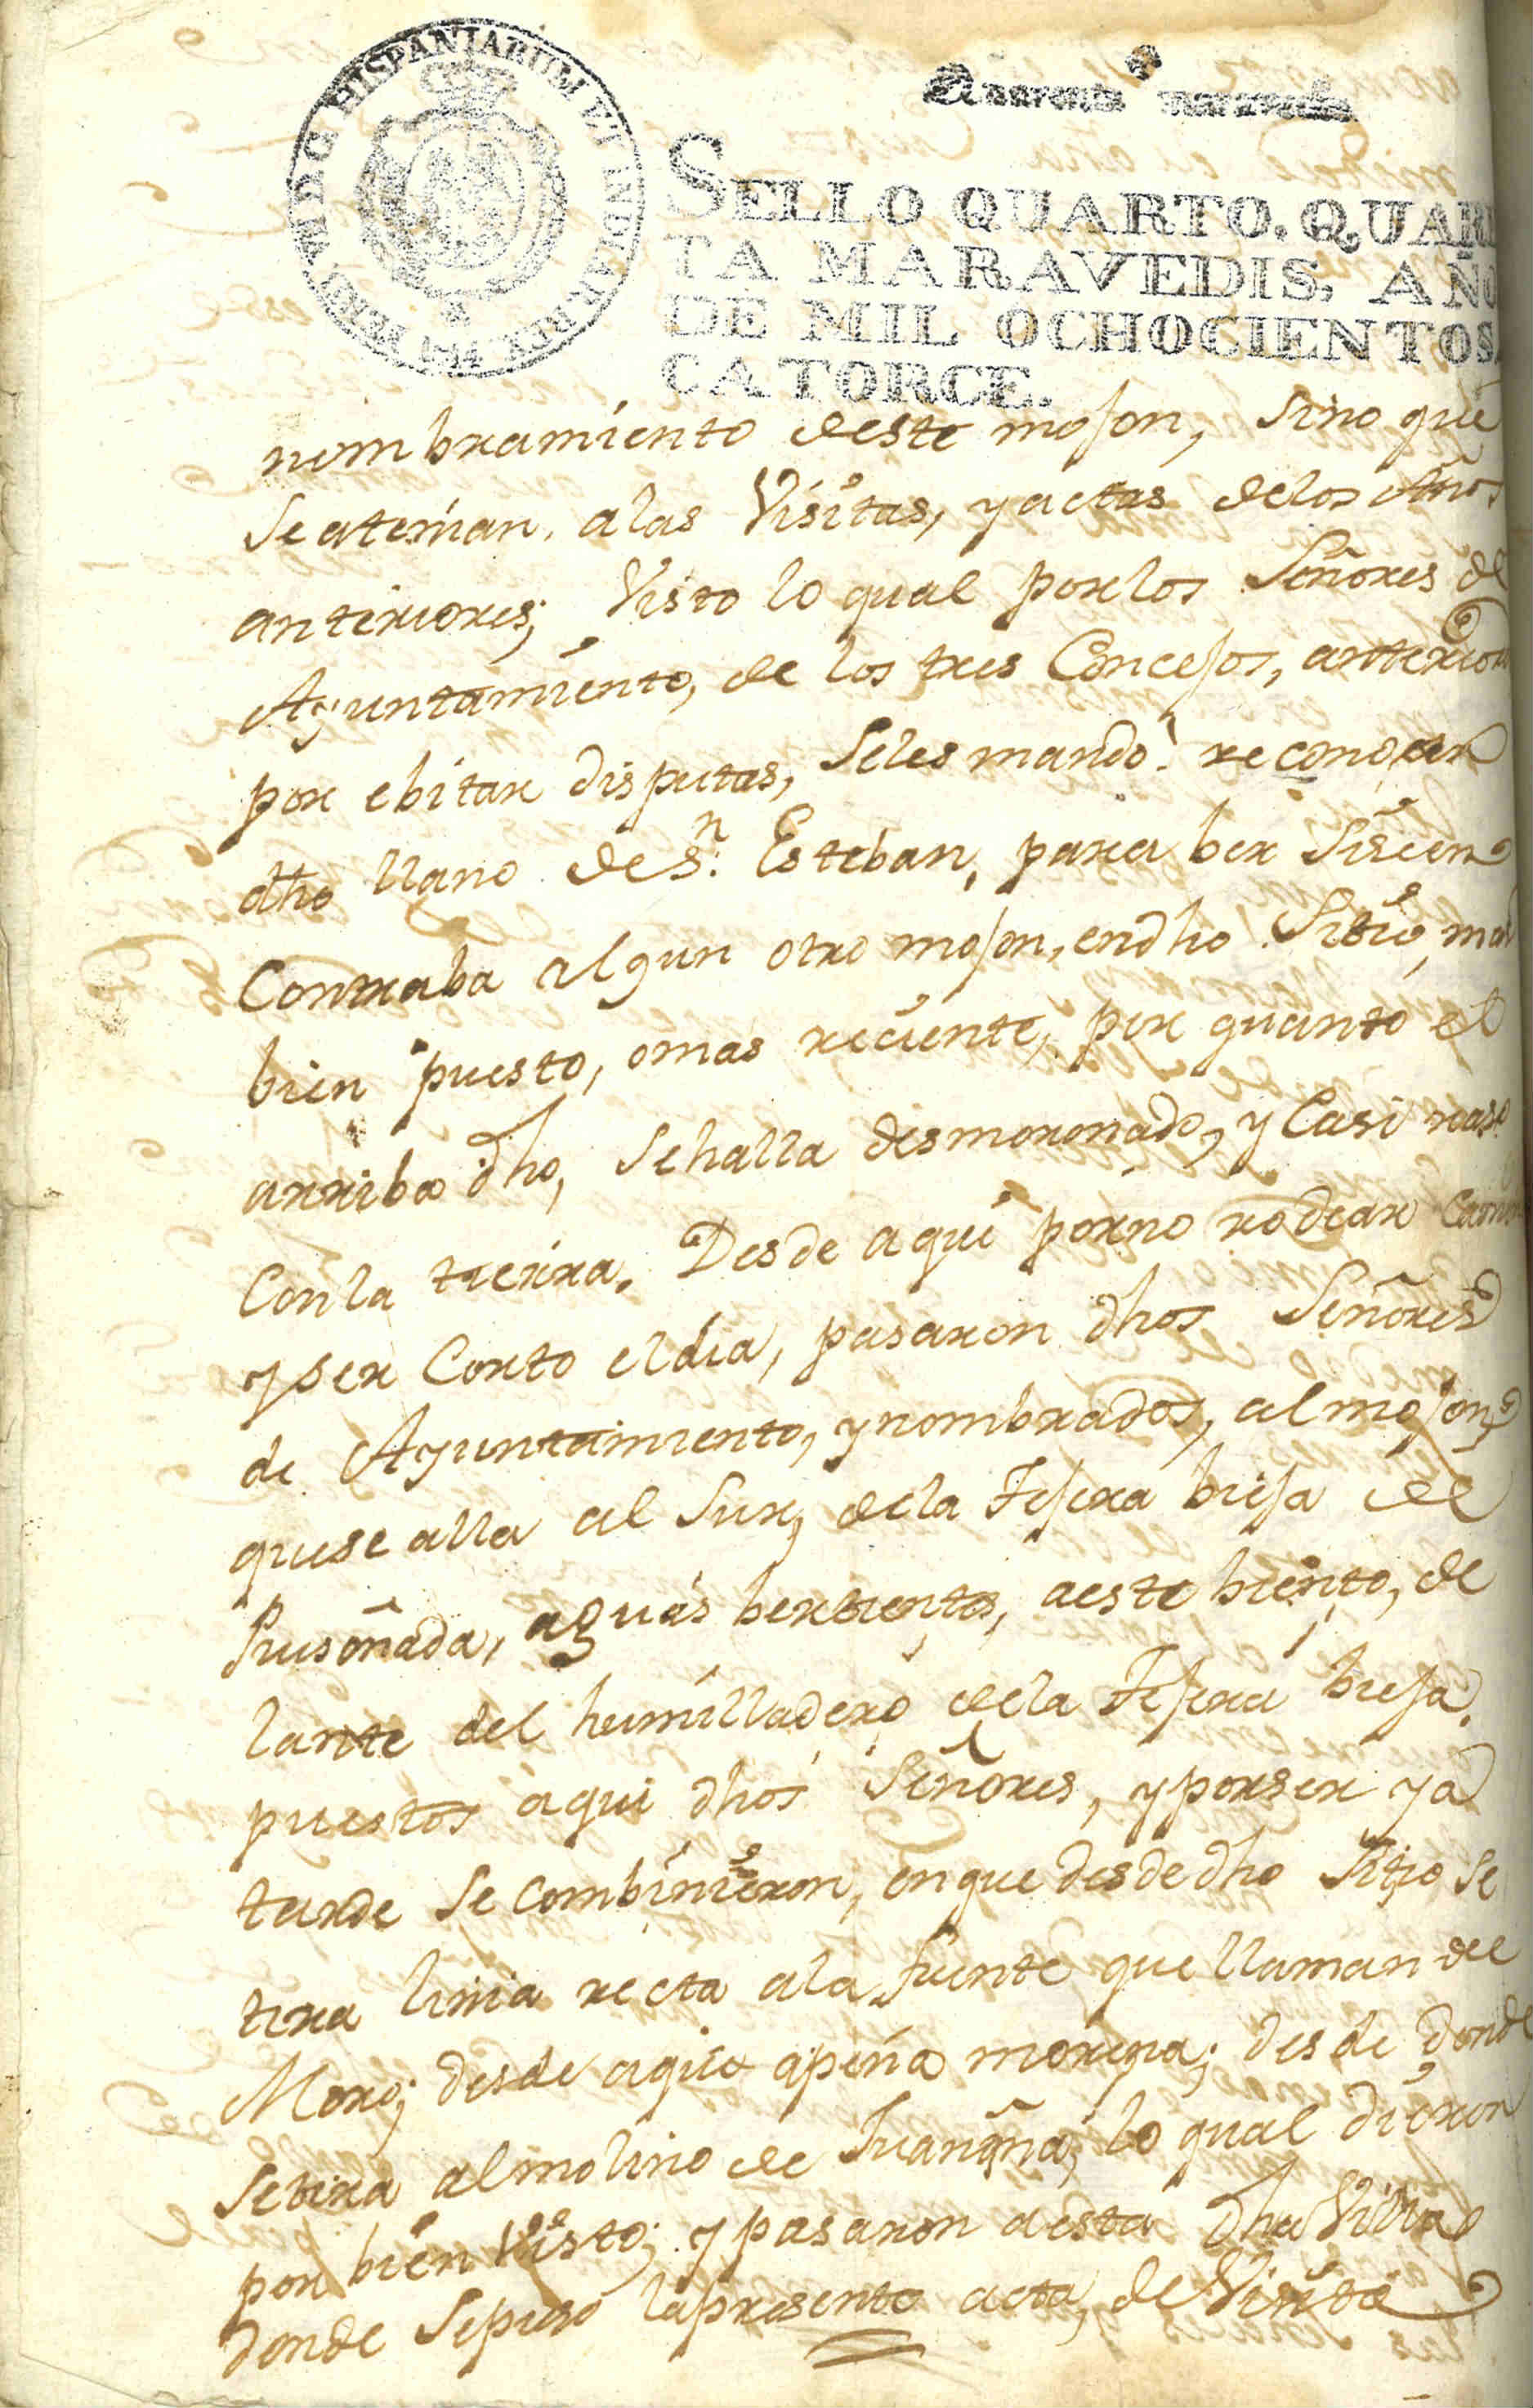 HISPANIARUM ET INDIAR. REX
FERD. VII D.G.
1814
Quarenta maravedis
SELLO QUARTO, QUAREN
TA MARAVEDIS, AÑO
DE MIL OCHOCIENTOS
CATORCE.
nombramiento deste mojon, sino que
se atenian, a las Visitas, y actas delos Años
anteriores; Visto lo qual por los Señores de
Ayuntamiento, de los tres Concejos, anterior
por ebitar disputas, seles mando reconocer
dho llano de Sn. Esteban, para ber si seen
Contraba algun otro mojon, en dho Sitio, mas
bien puesto, o mas reciente, por quanto el
arriba dho, se halla desmoronado, y Casi raso
Con la tierra. Desde aqui por no rodear
y ser Corto el dia, pasaron dhos Señores
de Ayuntamiento, y nombrados, al mojon
que se alla al Sur, de la Tejera bieja de
Prusoñada, aguas bertientes, a este biento, de
lante del humilladero de la Tejera bieja.
puestos aqui dhos Señores, y por ser ya
tarde se combinieron, en que desde dho Sitio se
tira linia recta a la fuente que llaman del
Moro; desde aqui a peña morena; desde donde
se tira al molino de Tuanqna; lo qual dieron
por bien Visto; y pasaron a esta dha Villa
donde se puso la presente acta, de Visita